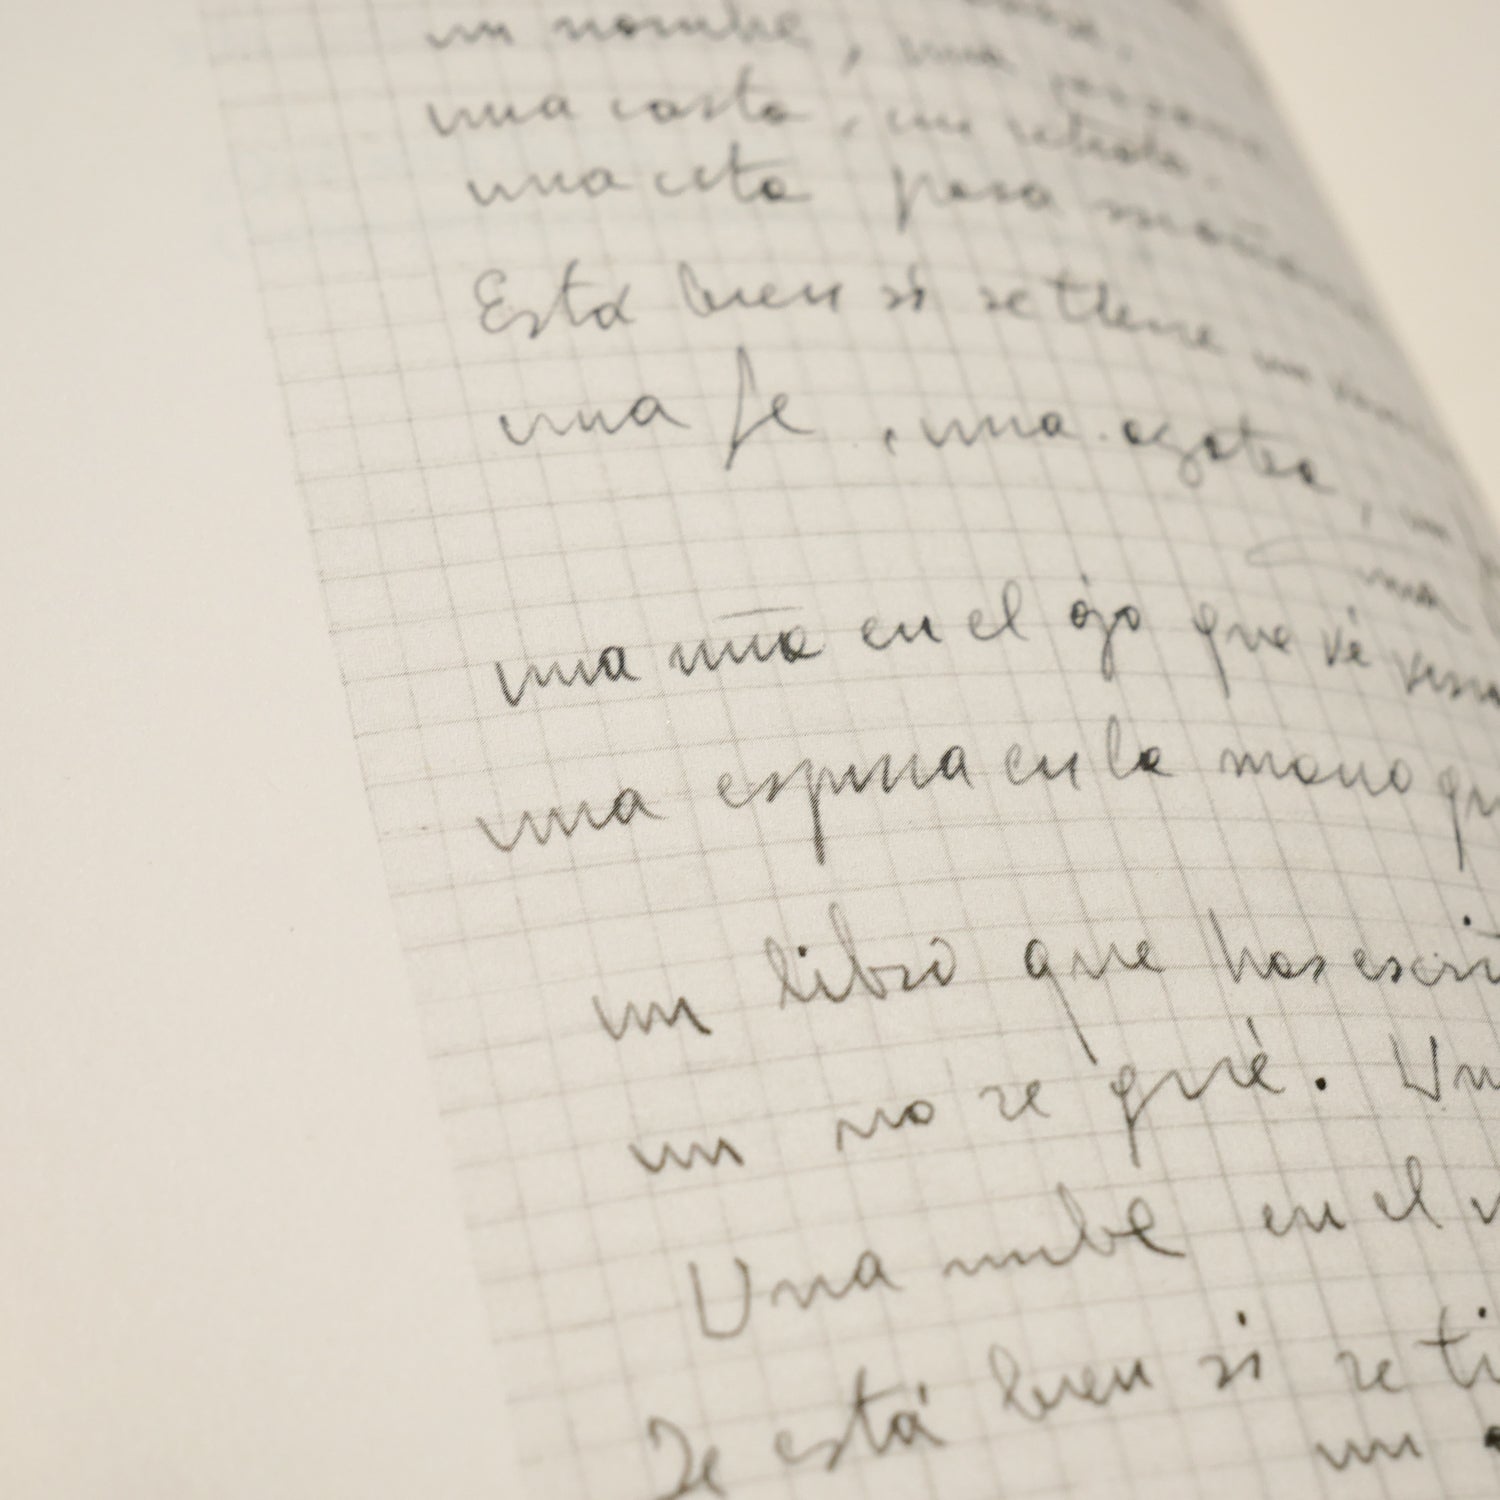 un nombre, una
una carta, un retrato,
una cita para mañana
Está bien si se tiene un
una fe, una azotea, un
una
una niña en el ojo que vé
una espina en la mano
un libro que has
un no se qué. Un
Una nube en el
Je está bien si se
un